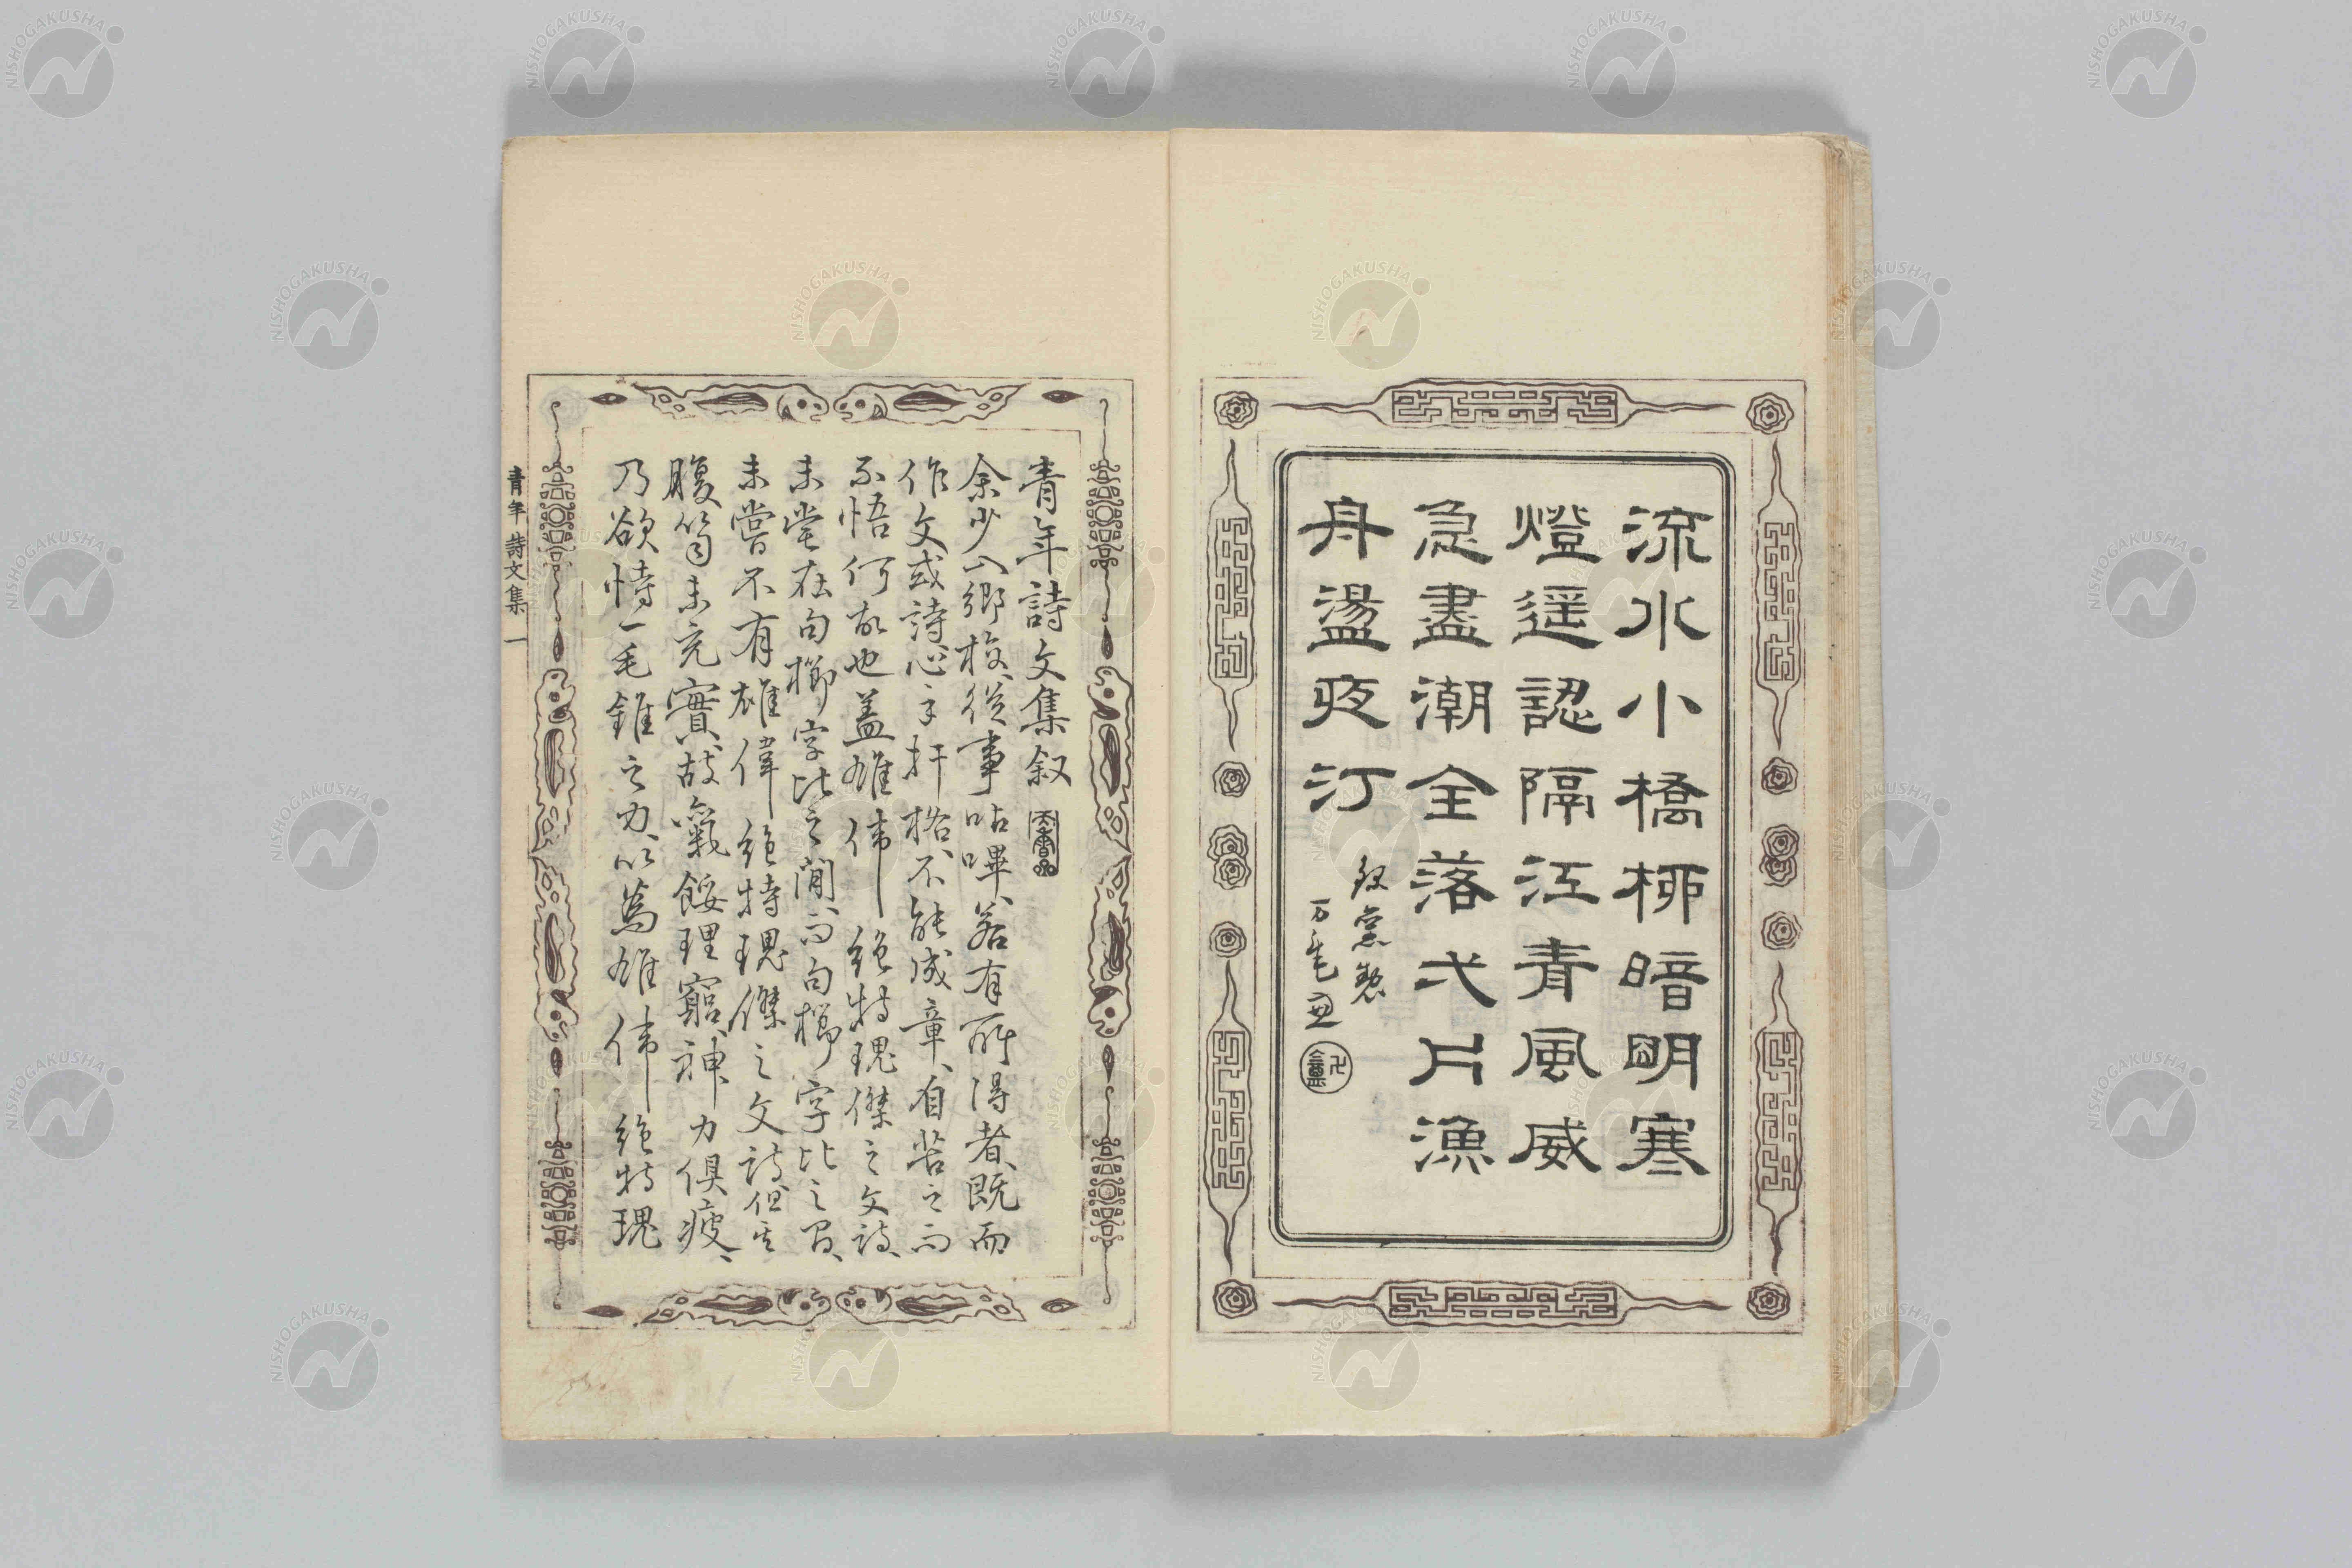 流水小橋柳暗明寒
燈遥認隔江青風威
急盡潮全落弍片漁
舟盪夜汀
青年詩文集叙
余少入郷校、従事呫嗶、若有所得者、既而
作文或詩、心手扞格、不能成章、自苦之而
不悟何故也、盖雄偉絶特瑰傑之文詩、
未嘗在句櫛字比之間、而句櫛字比之間、
未嘗不有雄偉絶特瑰傑之文詩、但其
腹笥未充實、故氣餒理窮、神力倶疲、
乃欲恃一毛錐之力、以為雄偉絶特瑰
青年詩文集 一
NISHOGAKUSHA